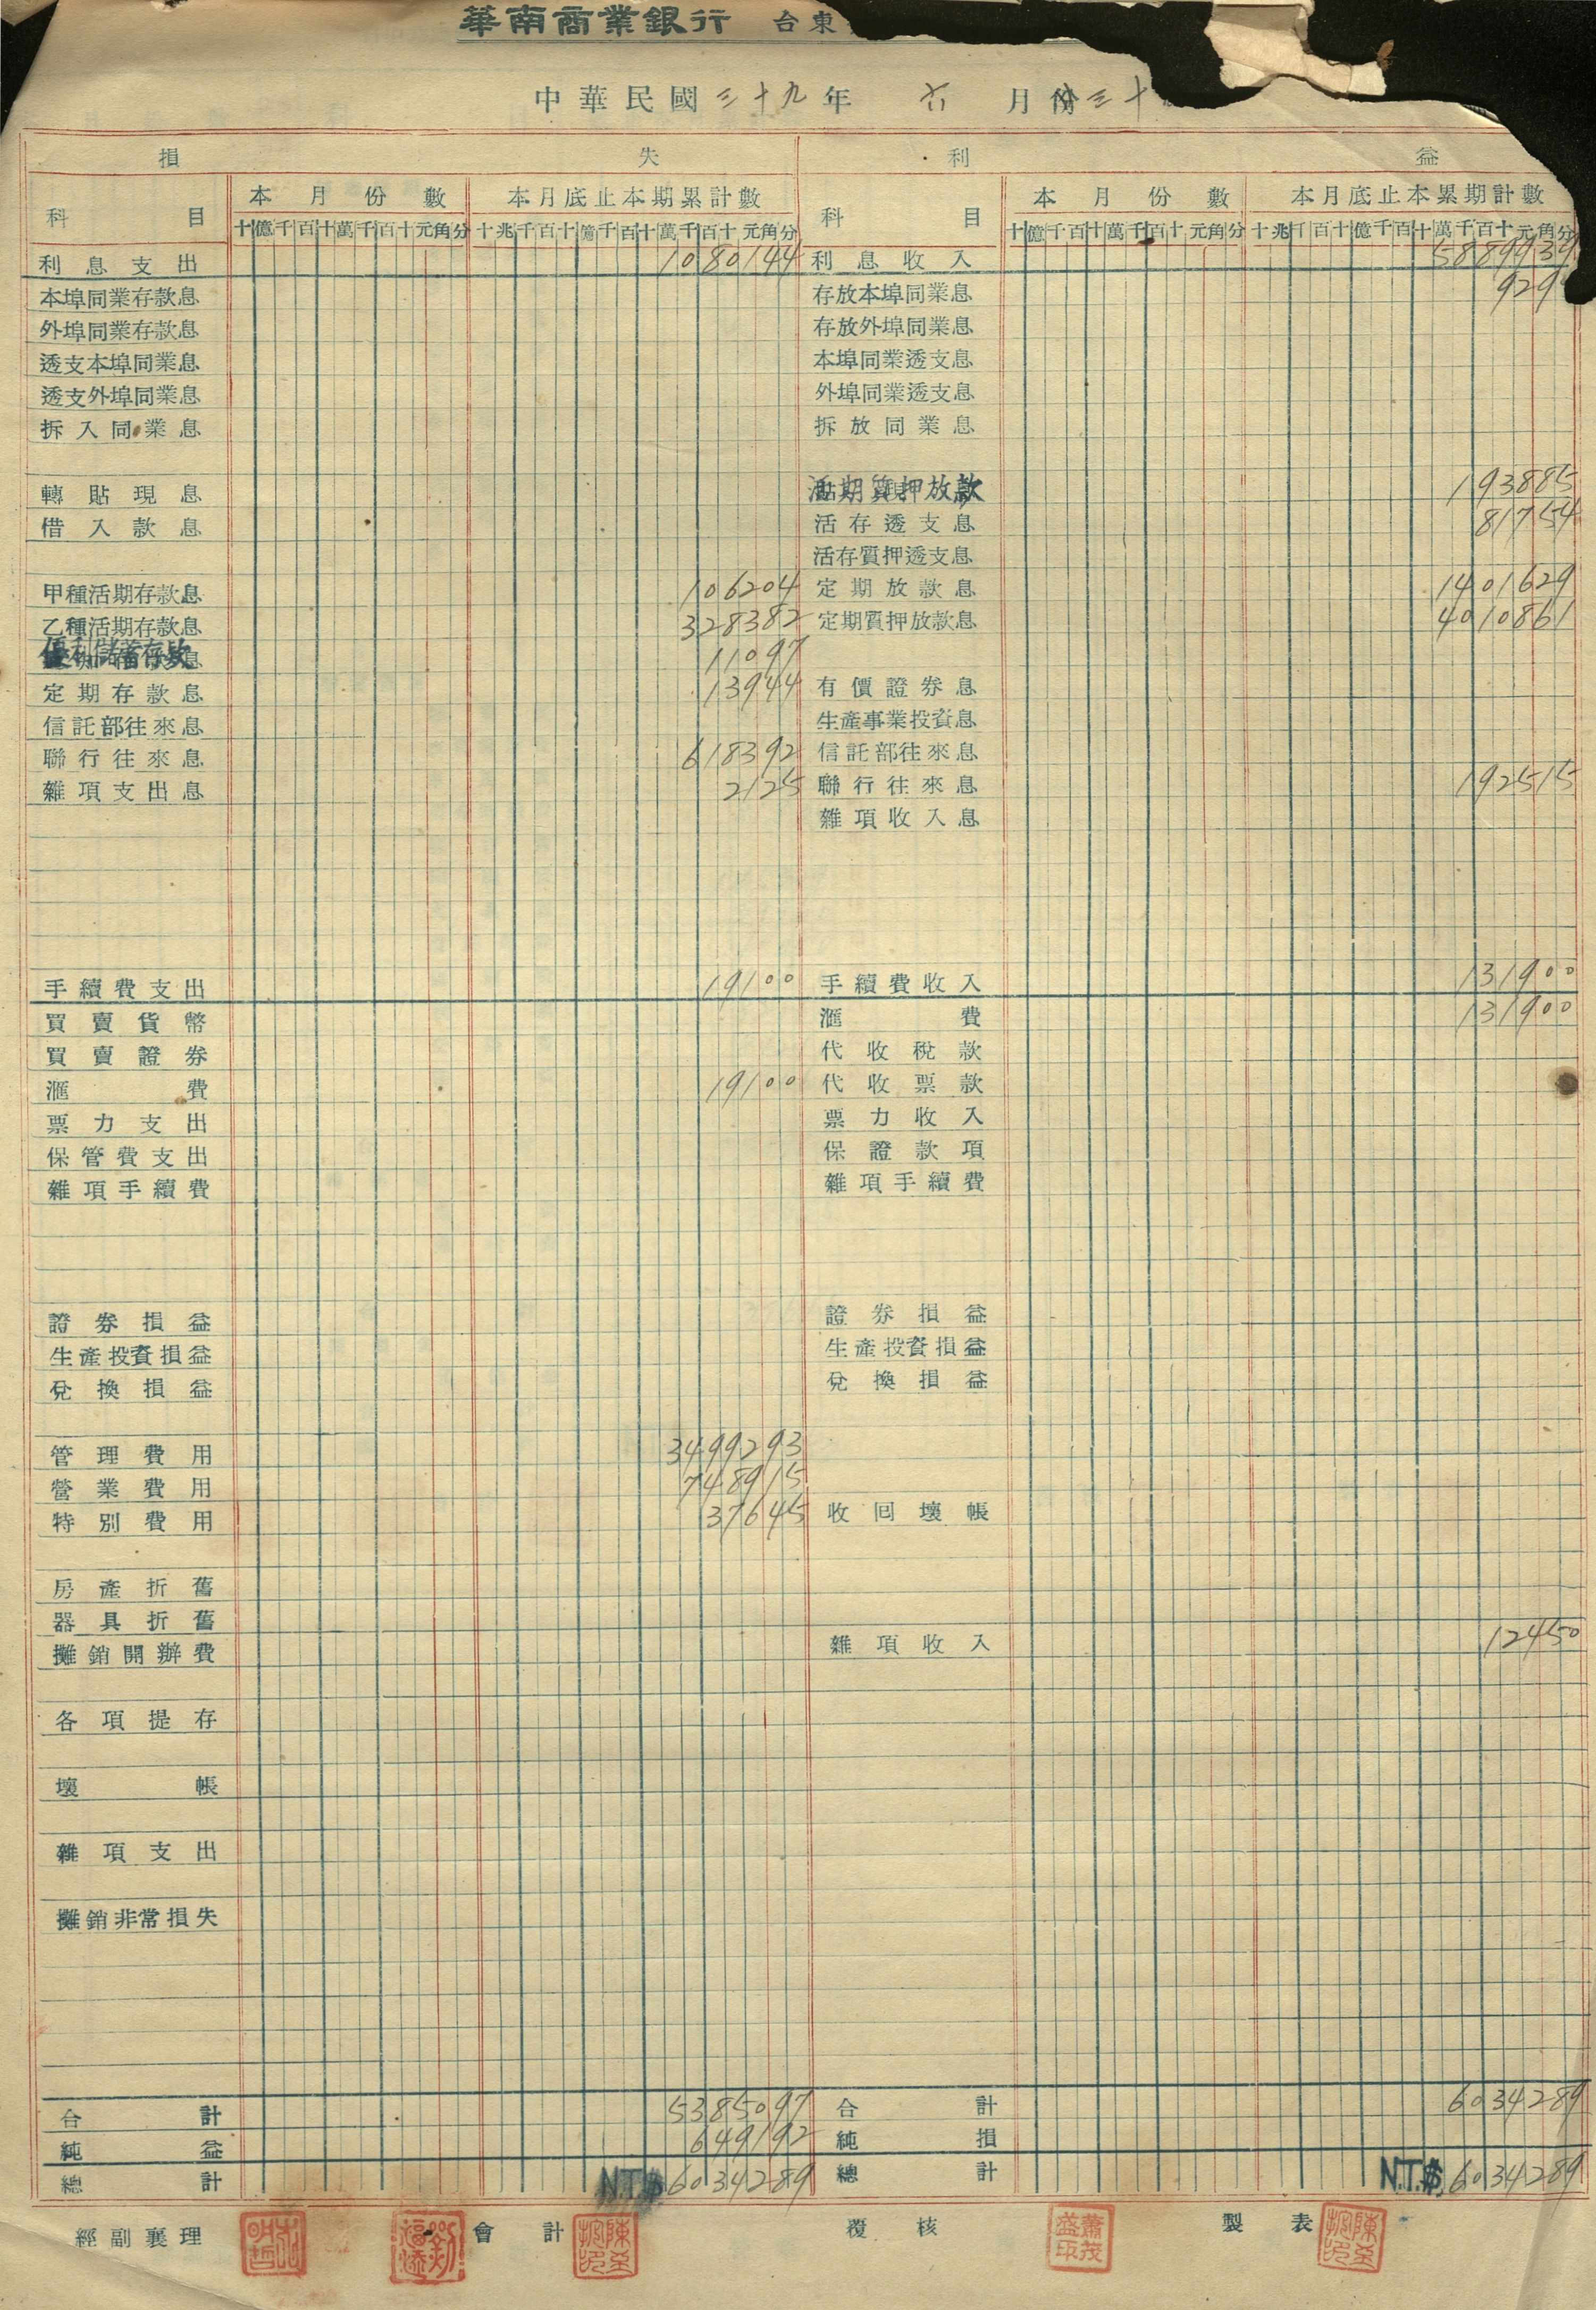 華南商業銀行 台東
中華民國三十九年 六 月份三十
損 失 利 益
科 目 本月份數 本月底止本期累計數 科 目 本月份數 本月底止本累期計數
十億千百十萬千百十元角分 十兆千百十億千百十萬千百十元角分 十億千百十萬千百十元角分 十兆千百十億千百十萬千百十元角分
利息支出 1080144 利息收入 5889939
本埠同業存款息 存放本埠同業息 929
外埠同業存款息 存放外埠同業息
透支本埠同業息 本埠同業透支息
透支外埠同業息 外埠同業透支息
拆入同業息 拆放同業息
轉貼現息 活期質押放款 193885
借入款息 活存透支息 81754
活存質押透支息
甲種活期存款息 106204 定期放款息 1401629
乙種活期存款息 328382 定期質押放款息 4010861
優利儲蓄存款息 11097
定期存款息 13944 有價證券息
信託部往來息 生產事業投資息
聯行往來息 618392 信託部往來息
雜項支出息 2125 聯行往來息 192515
雜項收入息
手續費支出 19100 手續費收入 131900
買賣貨幣 滙費 131900
買賣證券 代收稅款
滙費 19100 代收票款
票力支出 票力收入
保管費支出 保證款項
雜項手續費 雜項手續費
證券損益 證券損益
生產投資損益 生產投資損益
兌換損益 兌換損益
管理費用 3499293
營業費用 748915
特別費用 37645 收回壞帳
房產折舊
器具折舊
攤銷開辦費 雜項收入 12450
各項提存
壞帳
雜項支出
攤銷非常損失
合計 5385097 合計 6034289
純益 649192 純損
總計 N.T.$ 6034289 總計 N.T.$ 6034289
經副襄理 會計 覆核 蕭茂盛印 製表